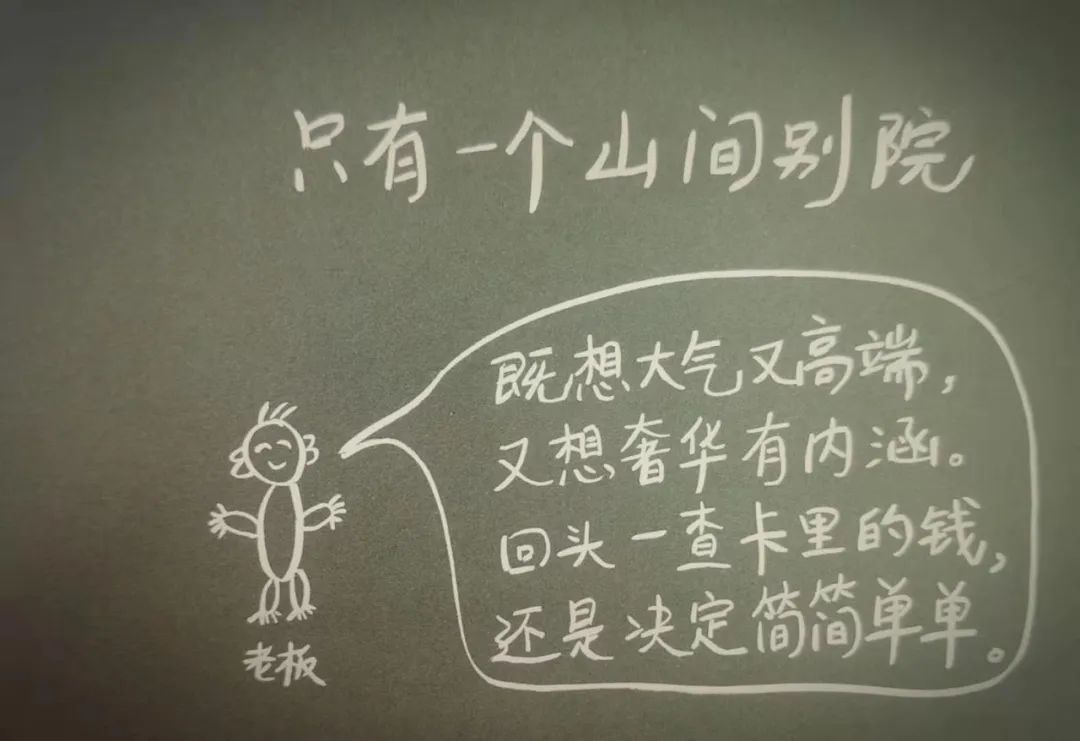 只有一个山间别院
既想大气又高端，
又想奢华有内涵。
回头一查卡里的钱，
还是决定简简单单。
老板